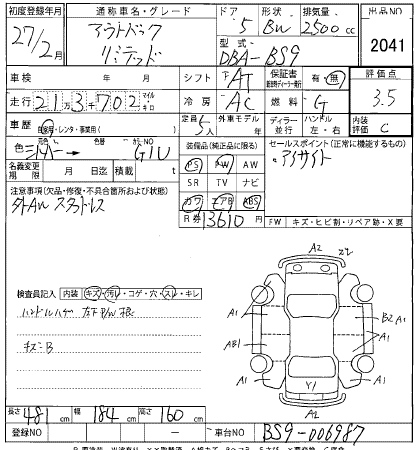 初度登録年月 通称車名・グレード ドア 形状 排気量 出品NO
27/2月 アウトバック リミテッド 5 BW 2500cc 2041
型式 DBA-BS9
車検 年 月 シフト AT 保証書 有・無 評価点
走行 21万3千702 マイル キロ 冷房 AC 燃料 G 3.5
車歴 自家用・レンタ・事業用( ) 定員 5人 外車モデル 年 ディーラー・並行 ハンドル 左・右 内装評価 C
色 シルバー→ 色替 カラーNO G1U 装備品(純正品に限る) セールスポイント(正常に機能するもの)
名義変更期限 月 日迄 積載量 t PS PW AW アイサイト
SR TV ナビ
注意事項(欠品・修復・不具合箇所および状態) カワ エアB ABS
社外AW スタッドレス R券 13610円 FW キズ・ヒビ割・リペア跡・X要
検査員記入 内装 キズ・汚れ・コゲ・穴・スレ・キレ
ハンドルハゲ
キズ=B
A2
A1 A1
B2 A1
AB1 A1
A1 Y1 A1
A2
長さ 481cm 幅 184cm 高さ 160cm
登録NO ― 車台NO BS9-006987